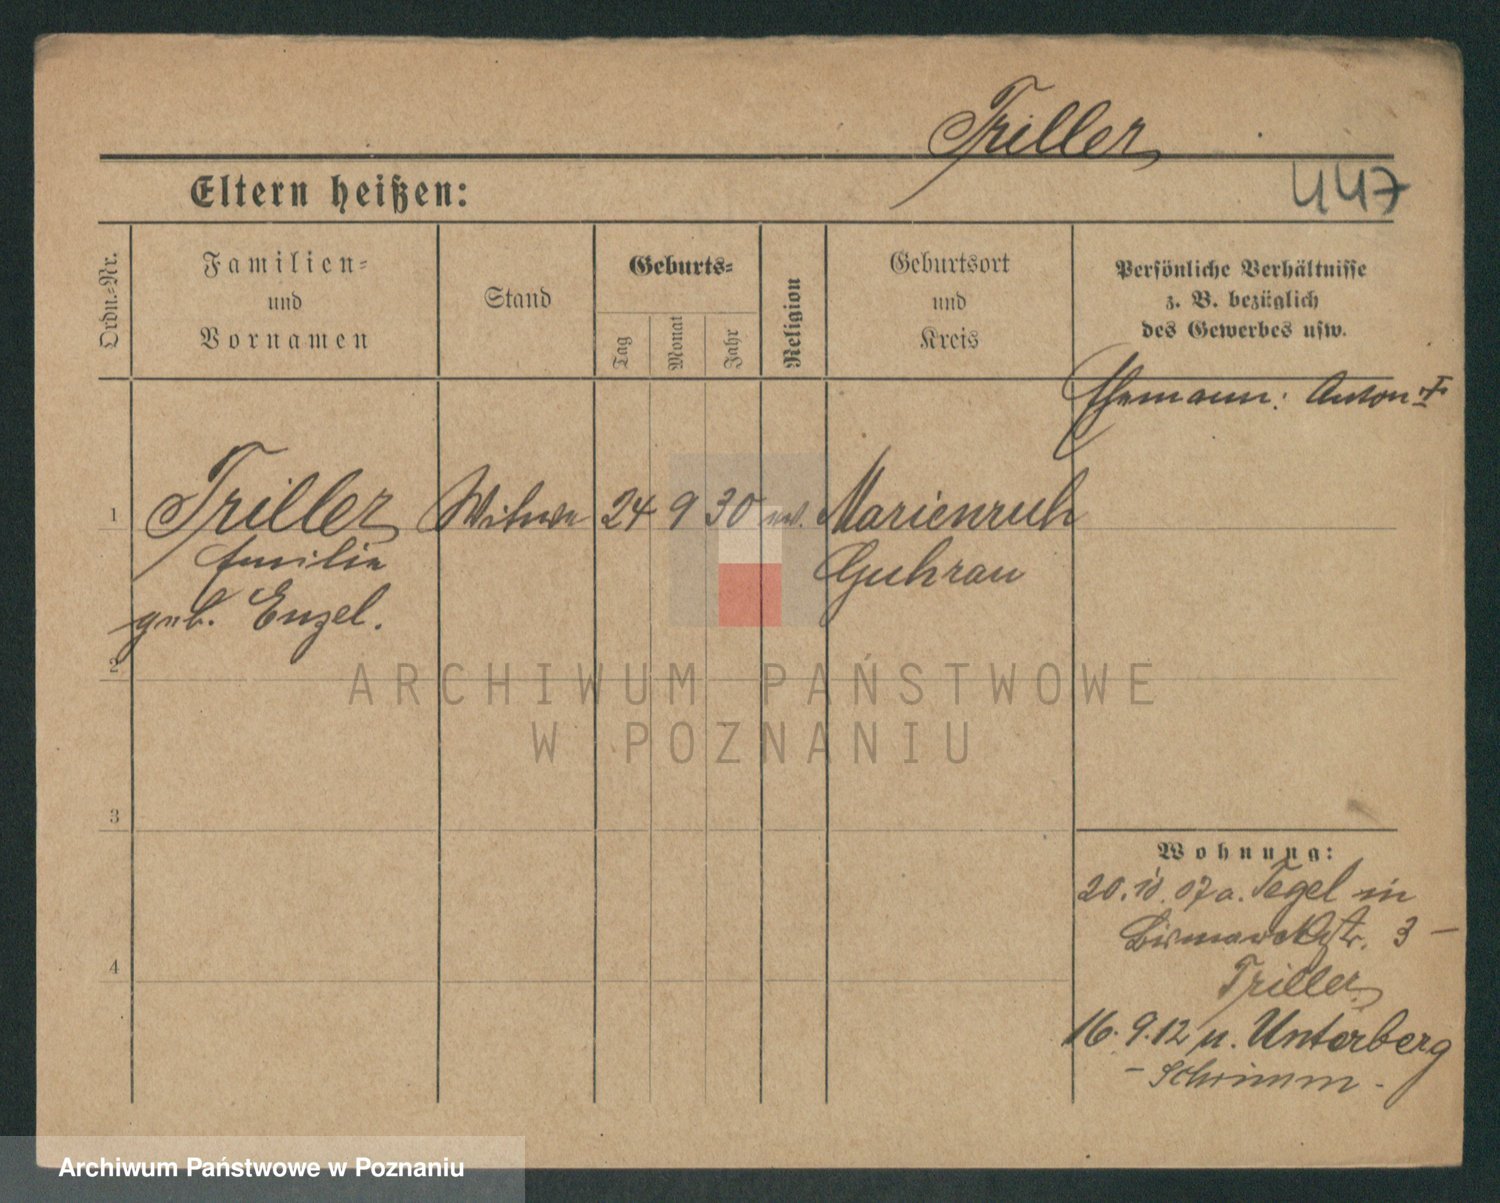 Triller
Eltern heißen:
447
Ordn.=Nr.
Familien=
und
Vornamen
Stand
Geburts=
Tag
Monat
Jahr
Religion
Geburtsort
und
Kreis
Persönliche Verhältnisse
z. B. bezüglich
des Gewerbes usw.
Ehemann: Anton †
1 Triller Witwe 24 9 30 ev. Marienruh
Emilie Guhrau
geb. Enzel.
2
3
4
Wohnung:
20.10.07 a. Tegel in
Bismarckstr. 3 –
Triller
16.9.12 n. Unterberg
– Schrimm –
ARCHIWUM PAŃSTWOWE
W POZNANIU
Archiwum Państwowe w Poznaniu